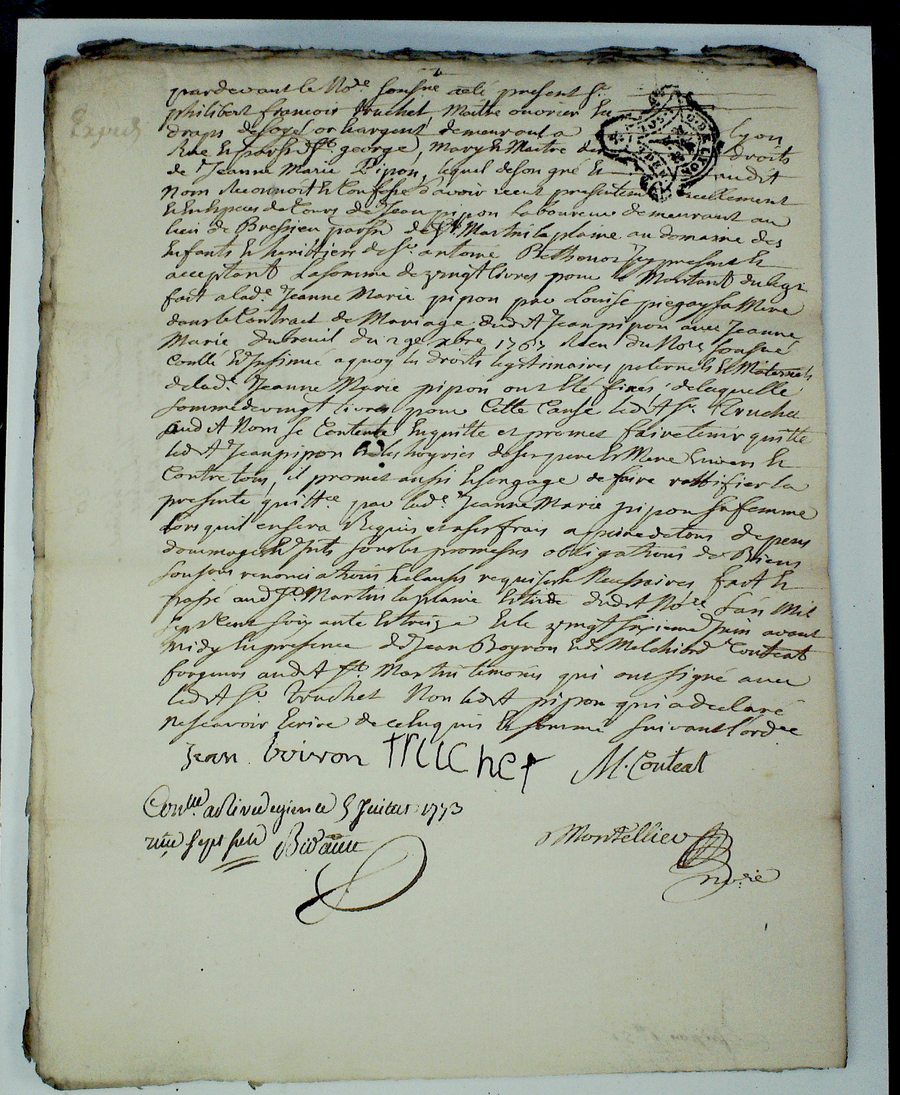 pardevant le No.re sousné a été present S.r
philibert françois truchet, Maitre ouvrier en
draps de soye or & argent demeurant a lyon
Rue & parss.e S.t george, Mary & Maitre des droits
de Jeanne Marie Pipon, lequel de son gré & audit
Nom Reconnoit & Confesse d'avoir reçu presentement reellement
& en especes de Cours de Jean pipon laboureur demeurant au
lieu de Bressieu parsse de S.t Martin la plaine au domaine des
Enfants & heritiers de S.r antoine icy present &
acceptant La somme de vingt livres pour le Montant du legs
fait a lad.e Jeanne Marie pipon par Louise piegay sa Mere
dans le Contract de Mariage dudit Jean pipon avec Jeanne
Marie dubreuil du 9bre 1767 Recu du No.re sousné
Conllé & Insinué a quoy les droits legitimaires paternels & Maternels
de lad.e Jeanne Marie pipon ont été fixés; de laquelle
somme de vingt livres pour Cette Cause ledit S.r truchet
audit Nom se Contente En quitte et promet faire tenir quitte
ledit Jean pipon & les hoyries de ses pere & Mere Envers &
Contre tous, il promet aussi & s'engage de faire rattifier la
presente quitt.ce par lad.e Jeanne Marie pipon sa femme
lors quil en sera Requis et a ses frais a peine de tous depens
dommages & Ints sous les promesses obligations de Biens
soumissions renonciations & clauses requises & Necessaires fait &
passé aud. S.t Martin la plaine Etude dudit No.re L'an Mil
sept Cent soixante & treize & le vingt sixieme Juin avant
Midy En presence de Jean Boyron & de Melchiord Couteat
forgeurs audit S.t Martin temoins qui ont signé avec
ledit S.r truchet Non ledit pipon qui a declaré
ne scavoir Ecrire de ce Enquis & sommé suivant l'ord.ce
Jean boiron truchet M. Couteat
Con.llé a Rivedegier le 5 Juillet 1773
reçu sept sols
Montellier
no.re